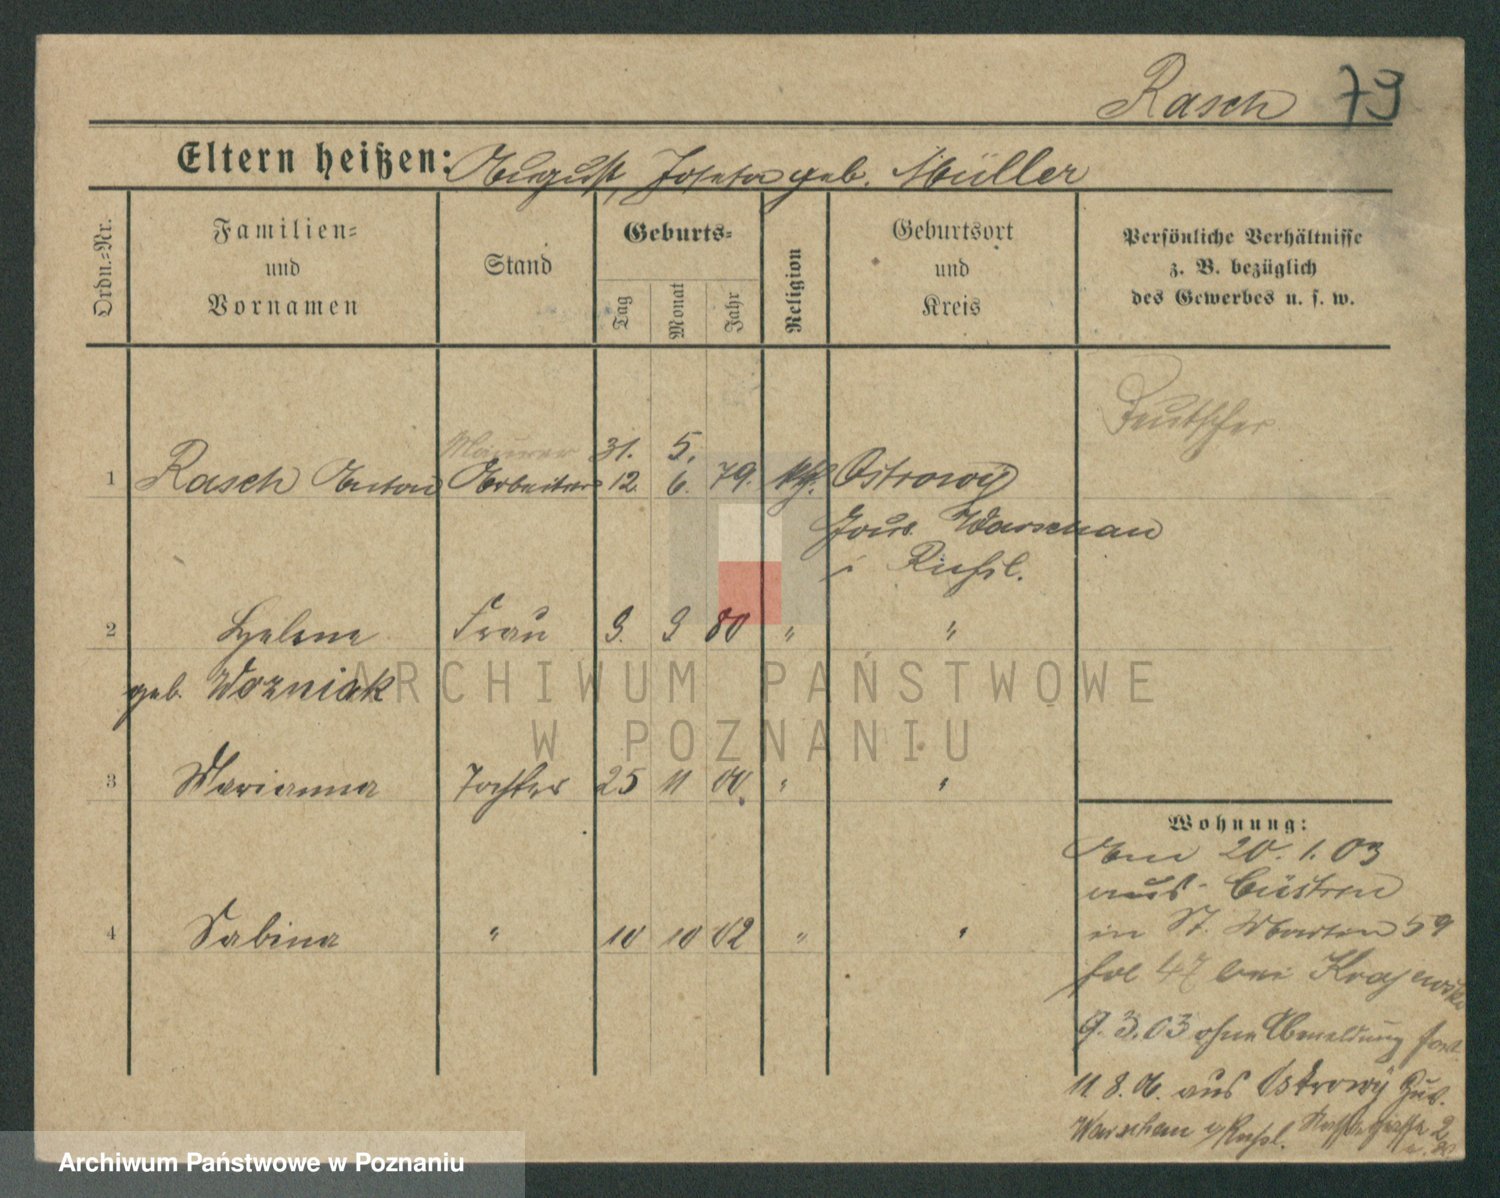 Rasch 79
Eltern heißen: August, Josefa geb. Müller
Ordn.-Nr.
Familien- und Vornamen
Stand
Geburts-
Tag
Monat
Jahr
Religion
Geburtsort und Kreis
Persönliche Verhältnisse
z. B. bezüglich
des Gewerbes u. s. w.
Deutscher
Maurer 31. 5.
1 Rasch Anton Arbeiter 12. 6. 79. kth. Ostrowy
Gouv. Warschau
i Rußl.
2 Helene Frau 9. 9 80 " "
geb. Wozniak
3 Marianna Tochter 25 11 00 " "
4 Sabina " 10 10 02 " "
Wohnung:
Am 20. 1. 03
aus Cüstrin
in St. Martin 59
fol 47 bei Krajewski
9. 3. 03 ohne Abmeldung fort
11 8. 06. aus Ostrowy Guv.
Warschau i/Rußl. 2
ARCHIWUM PAŃSTWOWE
W POZNANIU
Archiwum Państwowe w Poznaniu